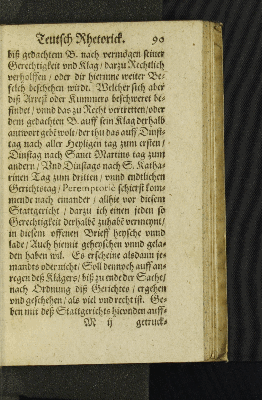 Teutsch Rhetorick. 90
biß gedachtem B. nach vermögen seiner
Gerechtigkeit vnd Klag / darzu Rechtlich
verholffen / oder dir hierinne weiter Be-
felch beschehen würdt. Welcher sich aber
diß Arrest oder Kummers beschweret be-
findet / vnnd das zu Recht vertretten / oder
dem gedachten B. auff sein Klag derhalb
antwort gebē wolt / der thu das auff Dinst-
tag nach aller Heyligen tag zum ersten /
Dinstag nach Sanct Martins tag zum
andern / Vnd Dinstags nach S. Katha-
rinen Tag zum dritten / vnnd endtlichen
Gerichtstag / Peremptoriè schierst kom-
mende nach einander / allhie vor diesem
Stattgericht / darzu ich einen jeden so
Gerechtigkeit derhalbē zuhabē vermeynt /
in diesem offenen Brieff heysche vnnd
lade / Auch hiemit geheyschen vnnd gela-
den haben wil. Es erscheine alsdann je-
mandts oder nicht / Soll dennoch auff an-
regen deß Klägers / biß zu ende der Sach /
nach Ordnung diß Gerichtes / ergehen
vnd geschehen / als viel vnd recht ist. Ge-
ben mit deß Stattgerichts hievnden auff-
M ij getruck-